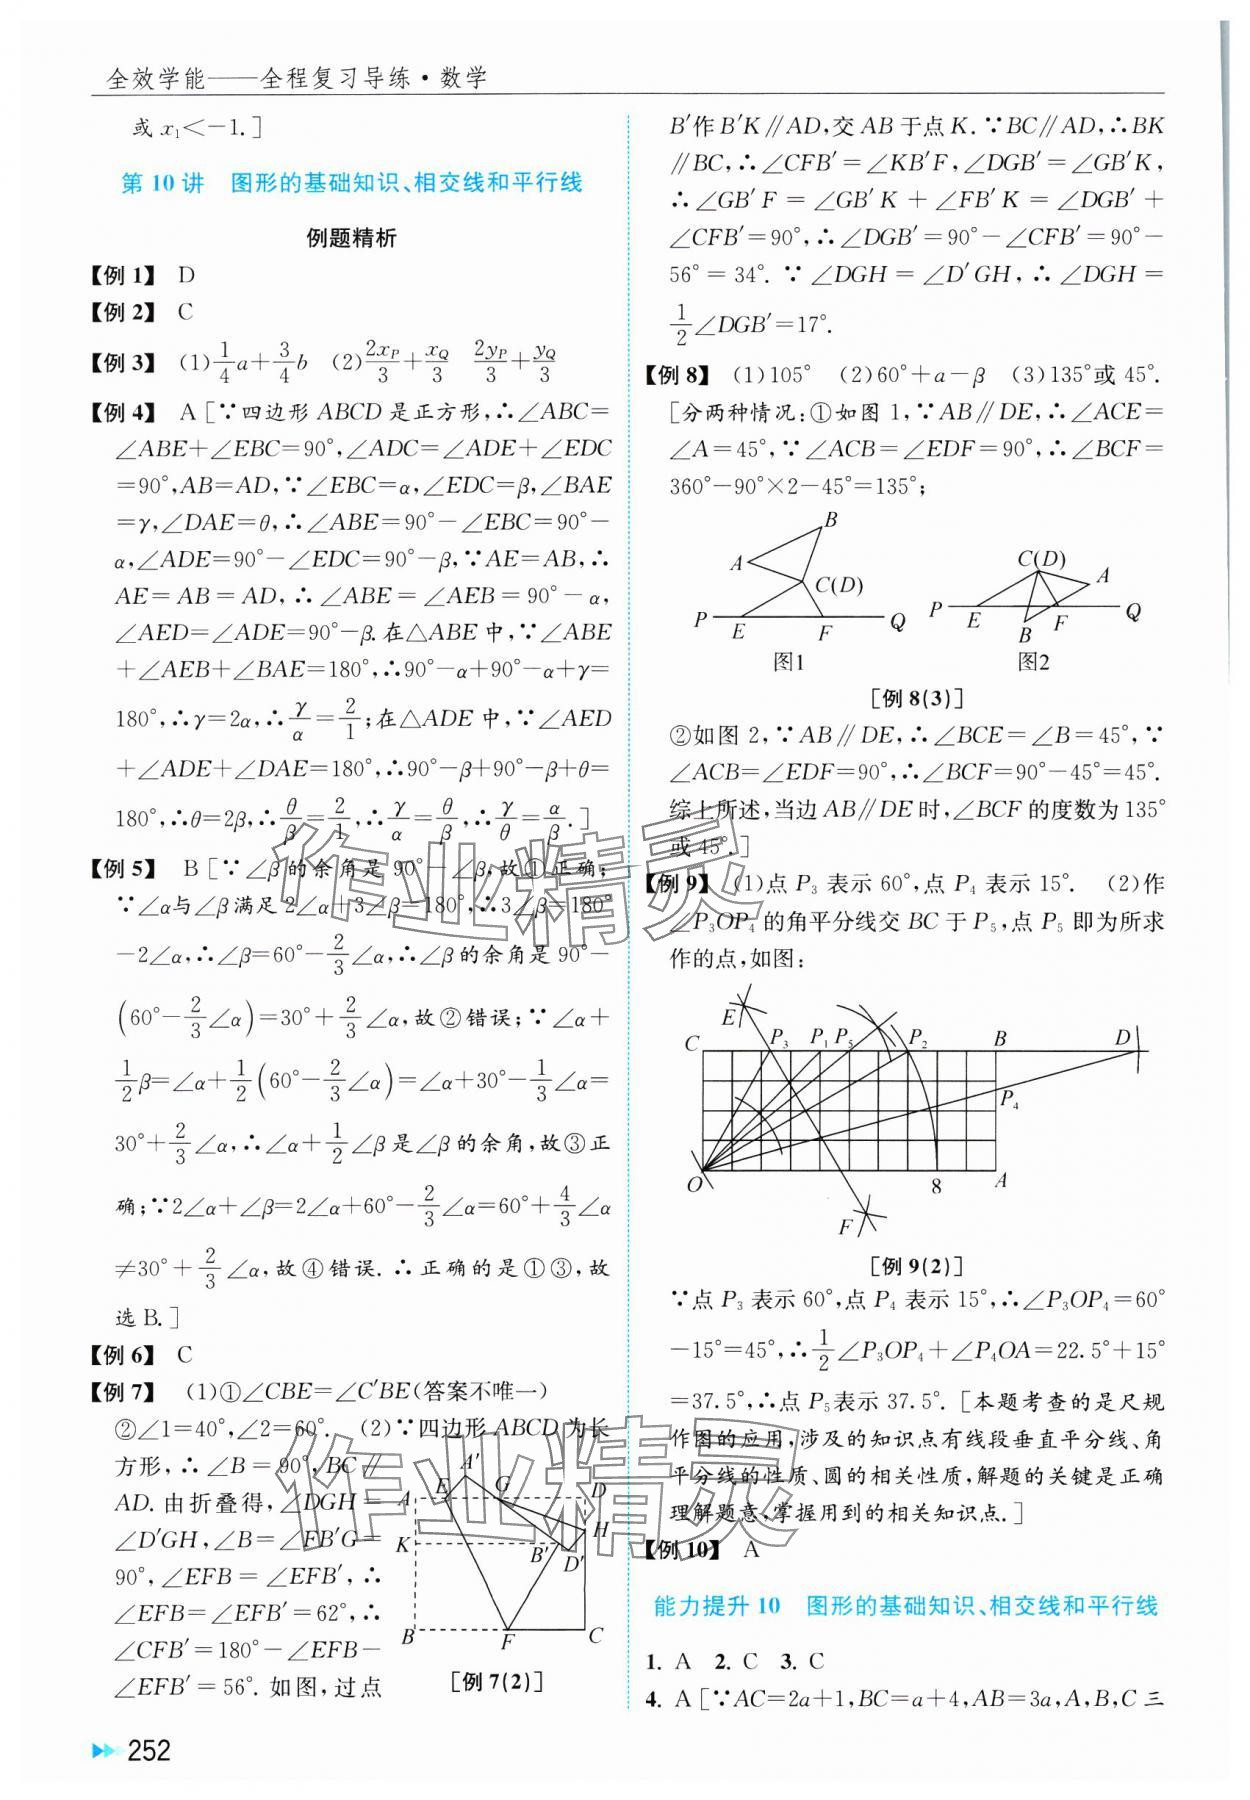 全效学能——全程复习导练·数学
或 x₁<-1.]
第 10 讲 图形的基础知识、相交线和平行线
例题精析
【例 1】 D
【例 2】 C
【例 3】 (1)1/4a+3/4b (2)2x_P/3+x_Q/3 2y_P/3+y_Q/3
【例 4】 A[∵四边形 ABCD 是正方形,∴∠ABC=
∠ABE+∠EBC=90°,∠ADC=∠ADE+∠EDC
=90°,AB=AD,∵∠EBC=α,∠EDC=β,∠BAE
=γ,∠DAE=θ,∴∠ABE=90°-∠EBC=90°-
α,∠ADE=90°-∠EDC=90°-β,∵AE=AB,∴
AE=AB=AD,∴∠ABE=∠AEB=90°-α,
∠AED=∠ADE=90°-β.在△ABE 中,∵∠ABE
+∠AEB+∠BAE=180°,∴90°-α+90°-α+γ=
180°,∴γ=2α,∴γ/α=2/1;在△ADE 中,∵∠AED
+∠ADE+∠DAE=180°,∴90°-β+90°-β+θ=
180°,∴θ=2β,∴θ/β=2/1,∴γ/α=θ/β,∴γ/θ=α/β.]
【例 5】 B[∵∠β的余角是 90°-∠β,故①正确;
∵∠α与∠β满足 2∠α+3∠β=180°,∴3∠β=180°
-2∠α,∴∠β=60°-2/3∠α,∴∠β的余角是 90°-
(60°-2/3∠α)=30°+2/3∠α,故②错误;∵∠α+
1/2β=∠α+1/2(60°-2/3∠α)=∠α+30°-1/3∠α=
30°+2/3∠α,∴∠α+1/2∠β是∠β的余角,故③正
确;∵2∠α+∠β=2∠α+60°-2/3∠α=60°+4/3∠α
≠30°+2/3∠α,故④错误.∴正确的是①③,故
选 B.]
【例 6】 C
【例 7】 (1)①∠CBE=∠C′BE(答案不唯一)
②∠1=40°,∠2=60°. (2)∵四边形 ABCD 为长
方形,∴∠B=90°,BC∥
AD.由折叠得,∠DGH=
∠D′GH,∠B=∠FB′G=
90°,∠EFB=∠EFB′,∴
∠EFB=∠EFB′=62°,∴
∠CFB′=180°-∠EFB-
∠EFB′=56°.如图,过点
A′
A E G D
H
K B′ D′
B F C
[例 7(2)]
B′作 B′K∥AD,交 AB 于点 K.∵BC∥AD,∴BK
∥BC,∴∠CFB′=∠KB′F,∠DGB′=∠GB′K,
∴∠GB′F=∠GB′K+∠FB′K=∠DGB′+
∠CFB′=90°,∴∠DGB′=90°-∠CFB′=90°-
56°=34°.∵∠DGH=∠D′GH,∴∠DGH=
1/2∠DGB′=17°.
【例 8】 (1)105° (2)60°+α-β (3)135°或 45°.
[分两种情况:①如图 1,∵AB∥DE,∴∠ACE=
∠A=45°,∵∠ACB=∠EDF=90°,∴∠BCF=
360°-90°×2-45°=135°;
B
A
C(D)
P E F Q
图1
C(D)
A
P E B F Q
图2
[例 8(3)]
②如图 2,∵AB∥DE,∴∠BCE=∠B=45°,∵
∠ACB=∠EDF=90°,∴∠BCF=90°-45°=45°.
综上所述,当边 AB∥DE 时,∠BCF 的度数为 135°
或 45°.]
【例 9】 (1)点 P₃ 表示 60°,点 P₄ 表示 15°. (2)作
∠P₃OP₄ 的角平分线交 BC 于 P₅,点 P₅ 即为所求
作的点,如图:
E
C P₃ P₁ P₅ P₂ B D
P₄
O 8 A
F
[例 9(2)]
∵点 P₃ 表示 60°,点 P₄ 表示 15°,∴∠P₃OP₄=60°
-15°=45°,∴1/2∠P₃OP₄+∠P₄OA=22.5°+15°
=37.5°,∴点 P₅表示 37.5°.[本题考查的是尺规
作图的应用,涉及的知识点有线段垂直平分线、角
平分线的性质、圆的相关性质,解题的关键是正确
理解题意,掌握用到的相关知识点.]
【例 10】 A
能力提升 10 图形的基础知识、相交线和平行线
1. A 2. C 3. C
4. A[∵AC=2a+1,BC=a+4,AB=3a,A,B,C 三
252
作业精灵
作业精灵